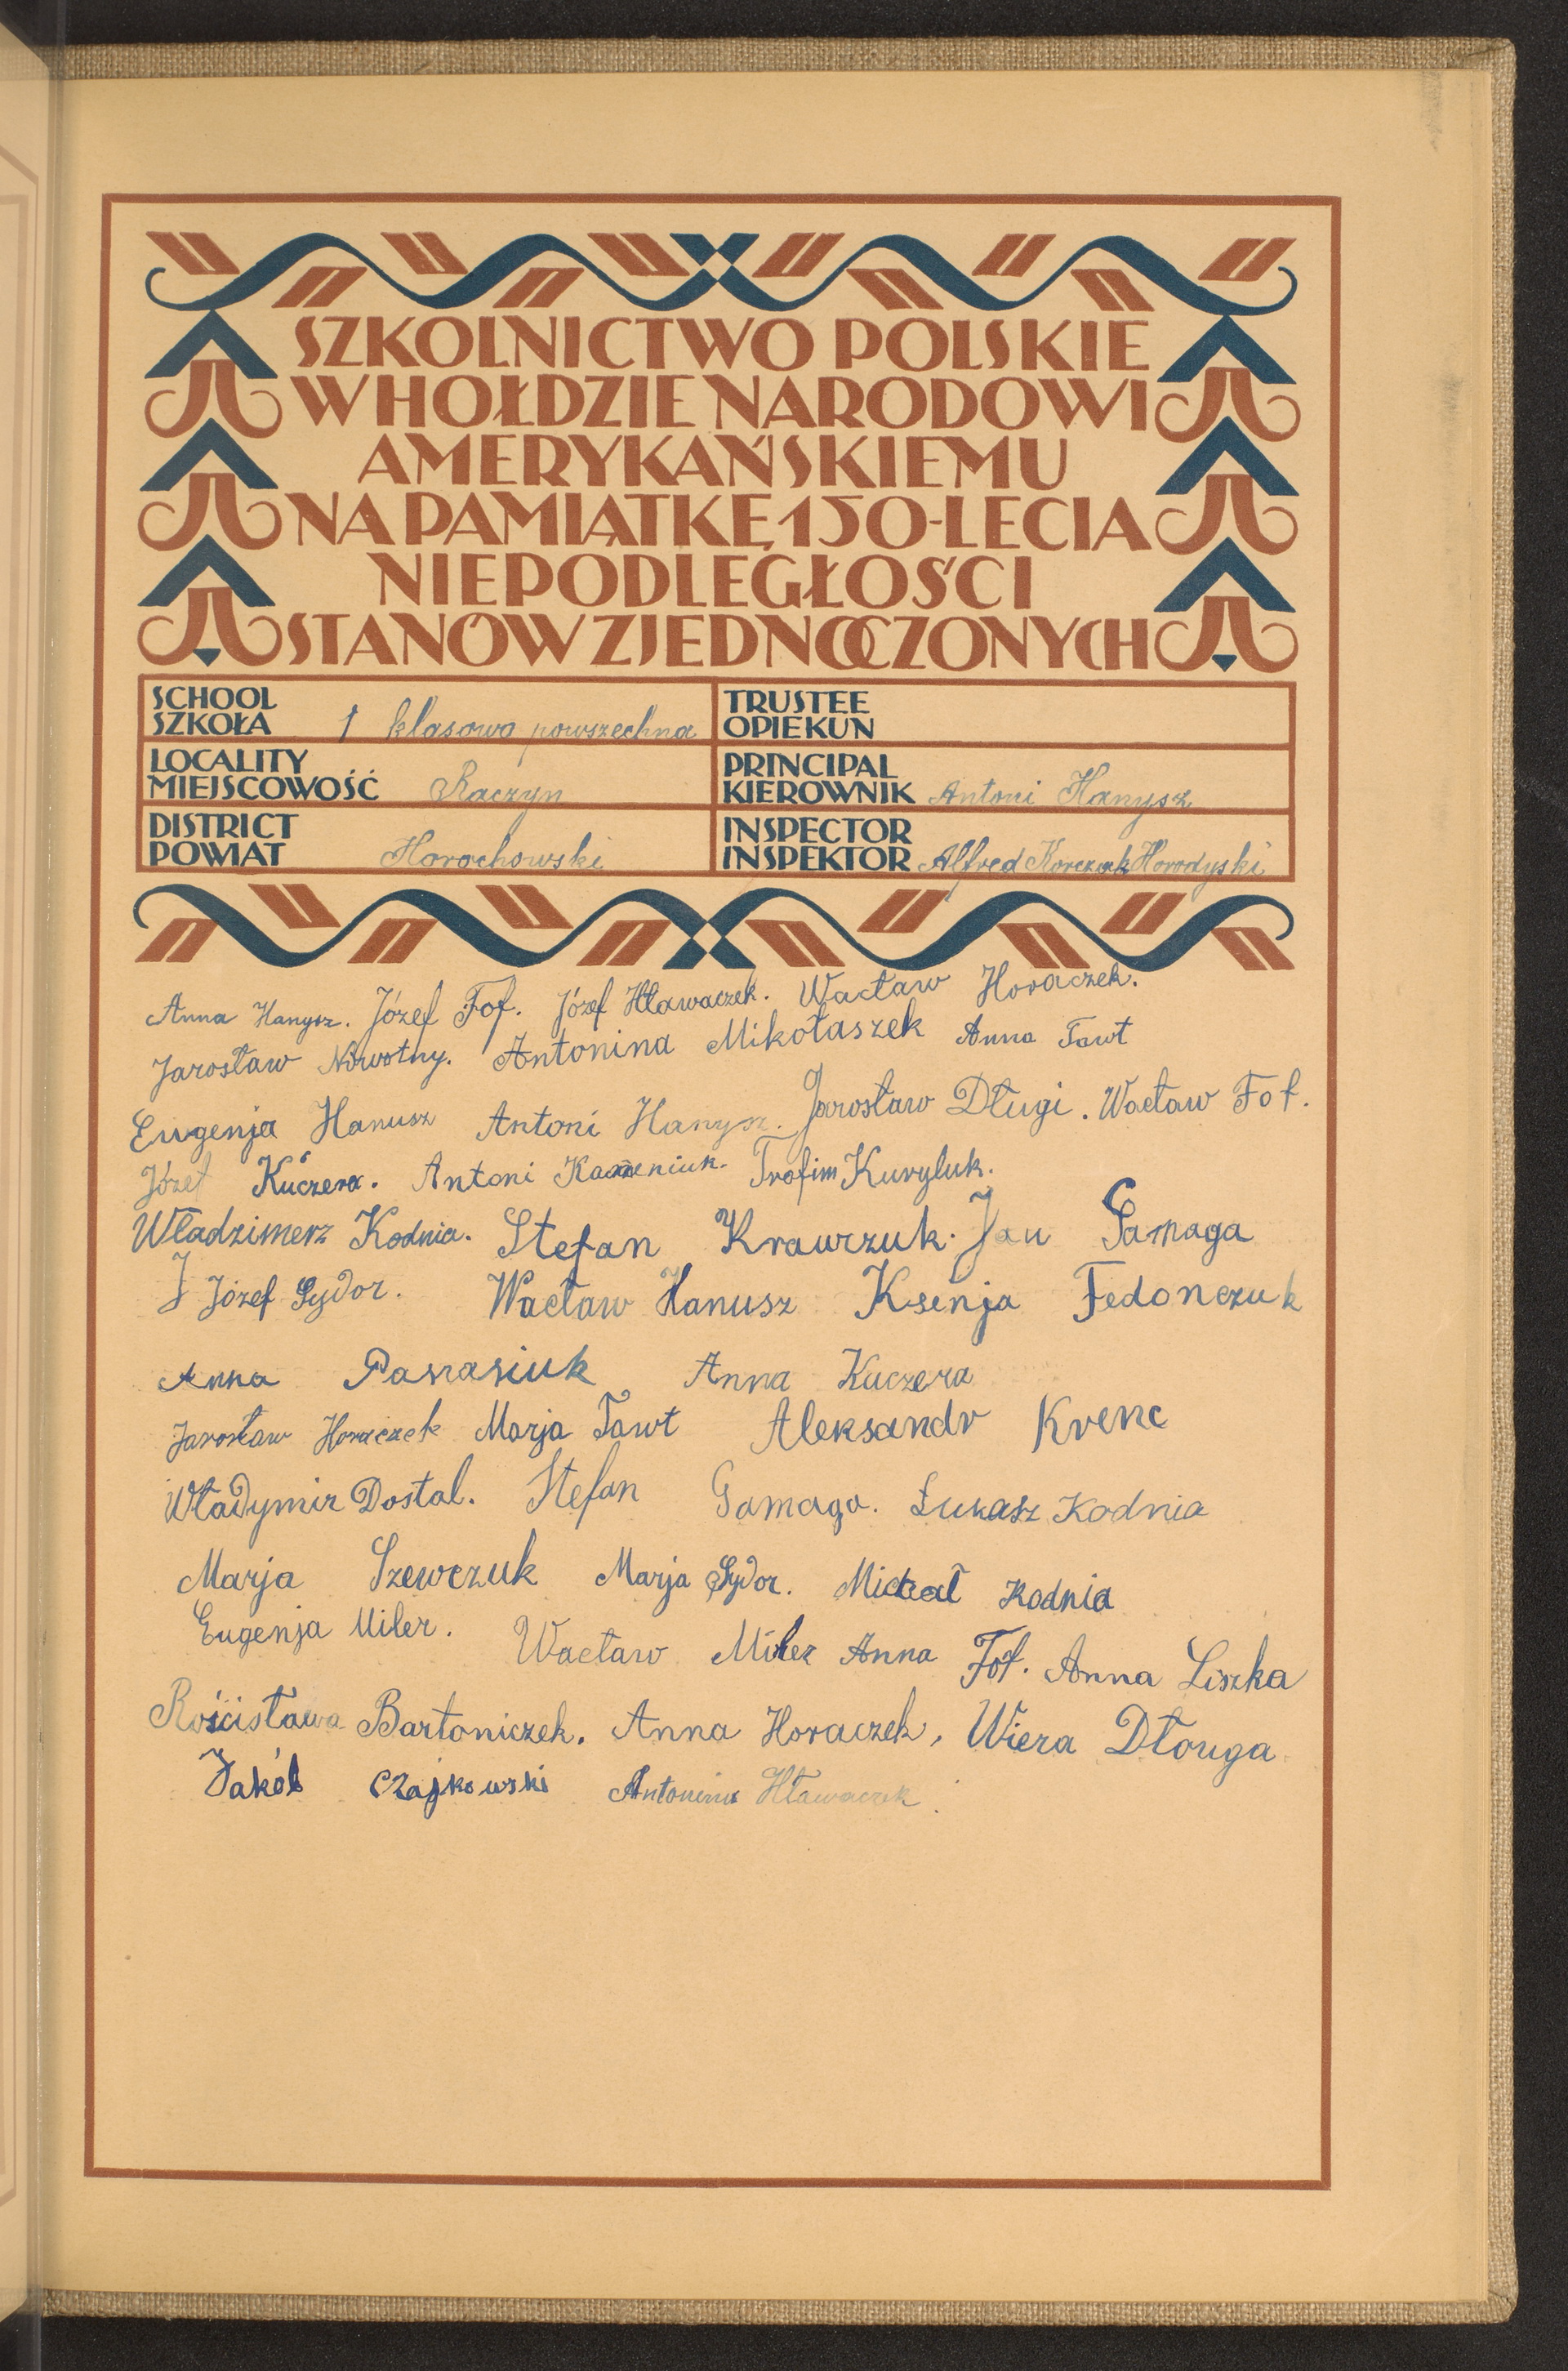 SZKOLNICTWO POLSKIE
W HOŁDZIE NARODOWI
AMERYKAŃSKIEMU
NA PAMIĄTKĘ 150-LECIA
NIEPODLEGŁOŚCI
STANÓW ZJEDNOCZONYCH
SCHOOL
SZKOŁA 1 klasowa powszechna
TRUSTEE
OPIEKUN
LOCALITY
MIEJSCOWOŚĆ Raczyn
PRINCIPAL
KIEROWNIK Antoni Hanysz
DISTRICT
POWIAT Horochowski
INSPECTOR
INSPEKTOR Alfred Korczak Horodyski
Anna Hanysz. Józef Fof. Józef Hławaczek. Wacław Horaczek.
Jarosław Nowotny. Antonina Mikołaszek Anna Tawt
Eugenja Hanusz Antoni Hanysz. Jarosław Długi. Wacław Fof.
Józef Kuczera. Antoni Kameniuk. Trofim Kuryluk.
Władzimerz Kodnia. Stefan Krawrzuk. Jan Gamaga
J Józef Sydor. Wacław Hanusz Ksenja Fedonczuk
Anna Panasiuk Anna Kuczera
Jarosław Horaczek Marja Tawt Aleksandr Krenc
Władymir Dostal. Stefan Gamaga. Łukasz Kodnia
Marja Szewczuk Marja Sydor. Michał Kodnia
Eugenja Miler. Wacław Miler Anna Fof. Anna Liszka
Rościsława Bartoniczek. Anna Horaczek, Wiera Dłouga
Jakób Czajkowski Antonina Hławaczek.